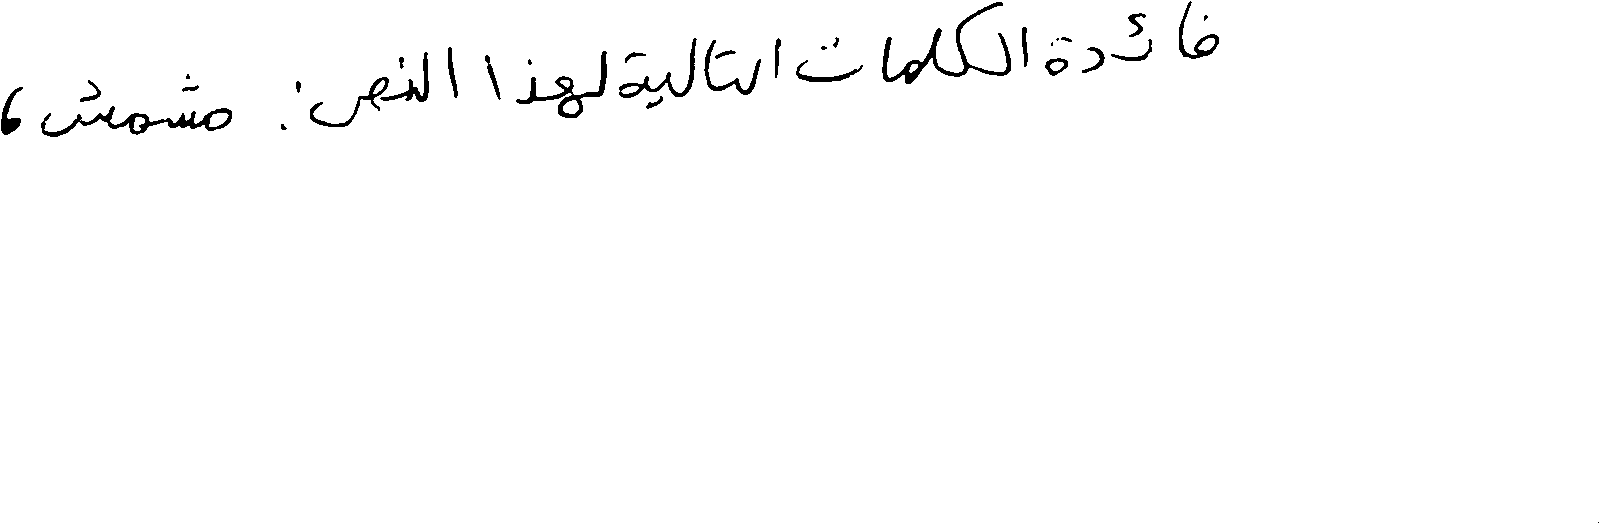 فائدة الكلمات التالية لهذا النص: مشمش،